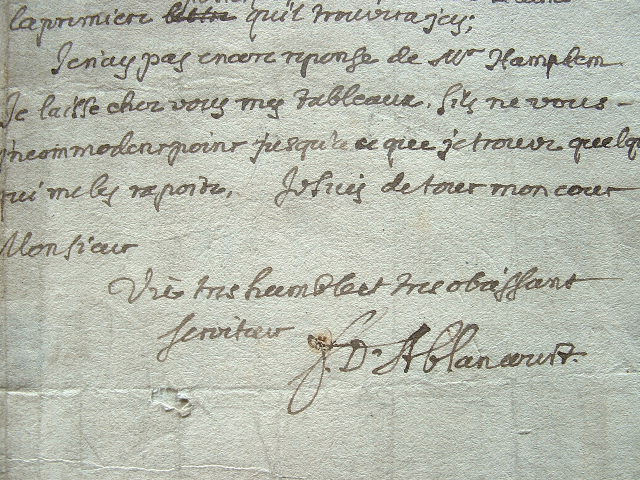 la premiere lettre qu'il trouvera jcy;
Je n'ay pas encore reponse de Mr Hamplem
Je laisse cher vous mes tableaux. s'ils ne vous -
incommodent point jusqu'a ce que je trouve quelqu
qui me les raporte. Je suis de tout mon cœur
Monsieur
Vre tres humble et tres obeissant
serviteur
f. D. Ablancourt.